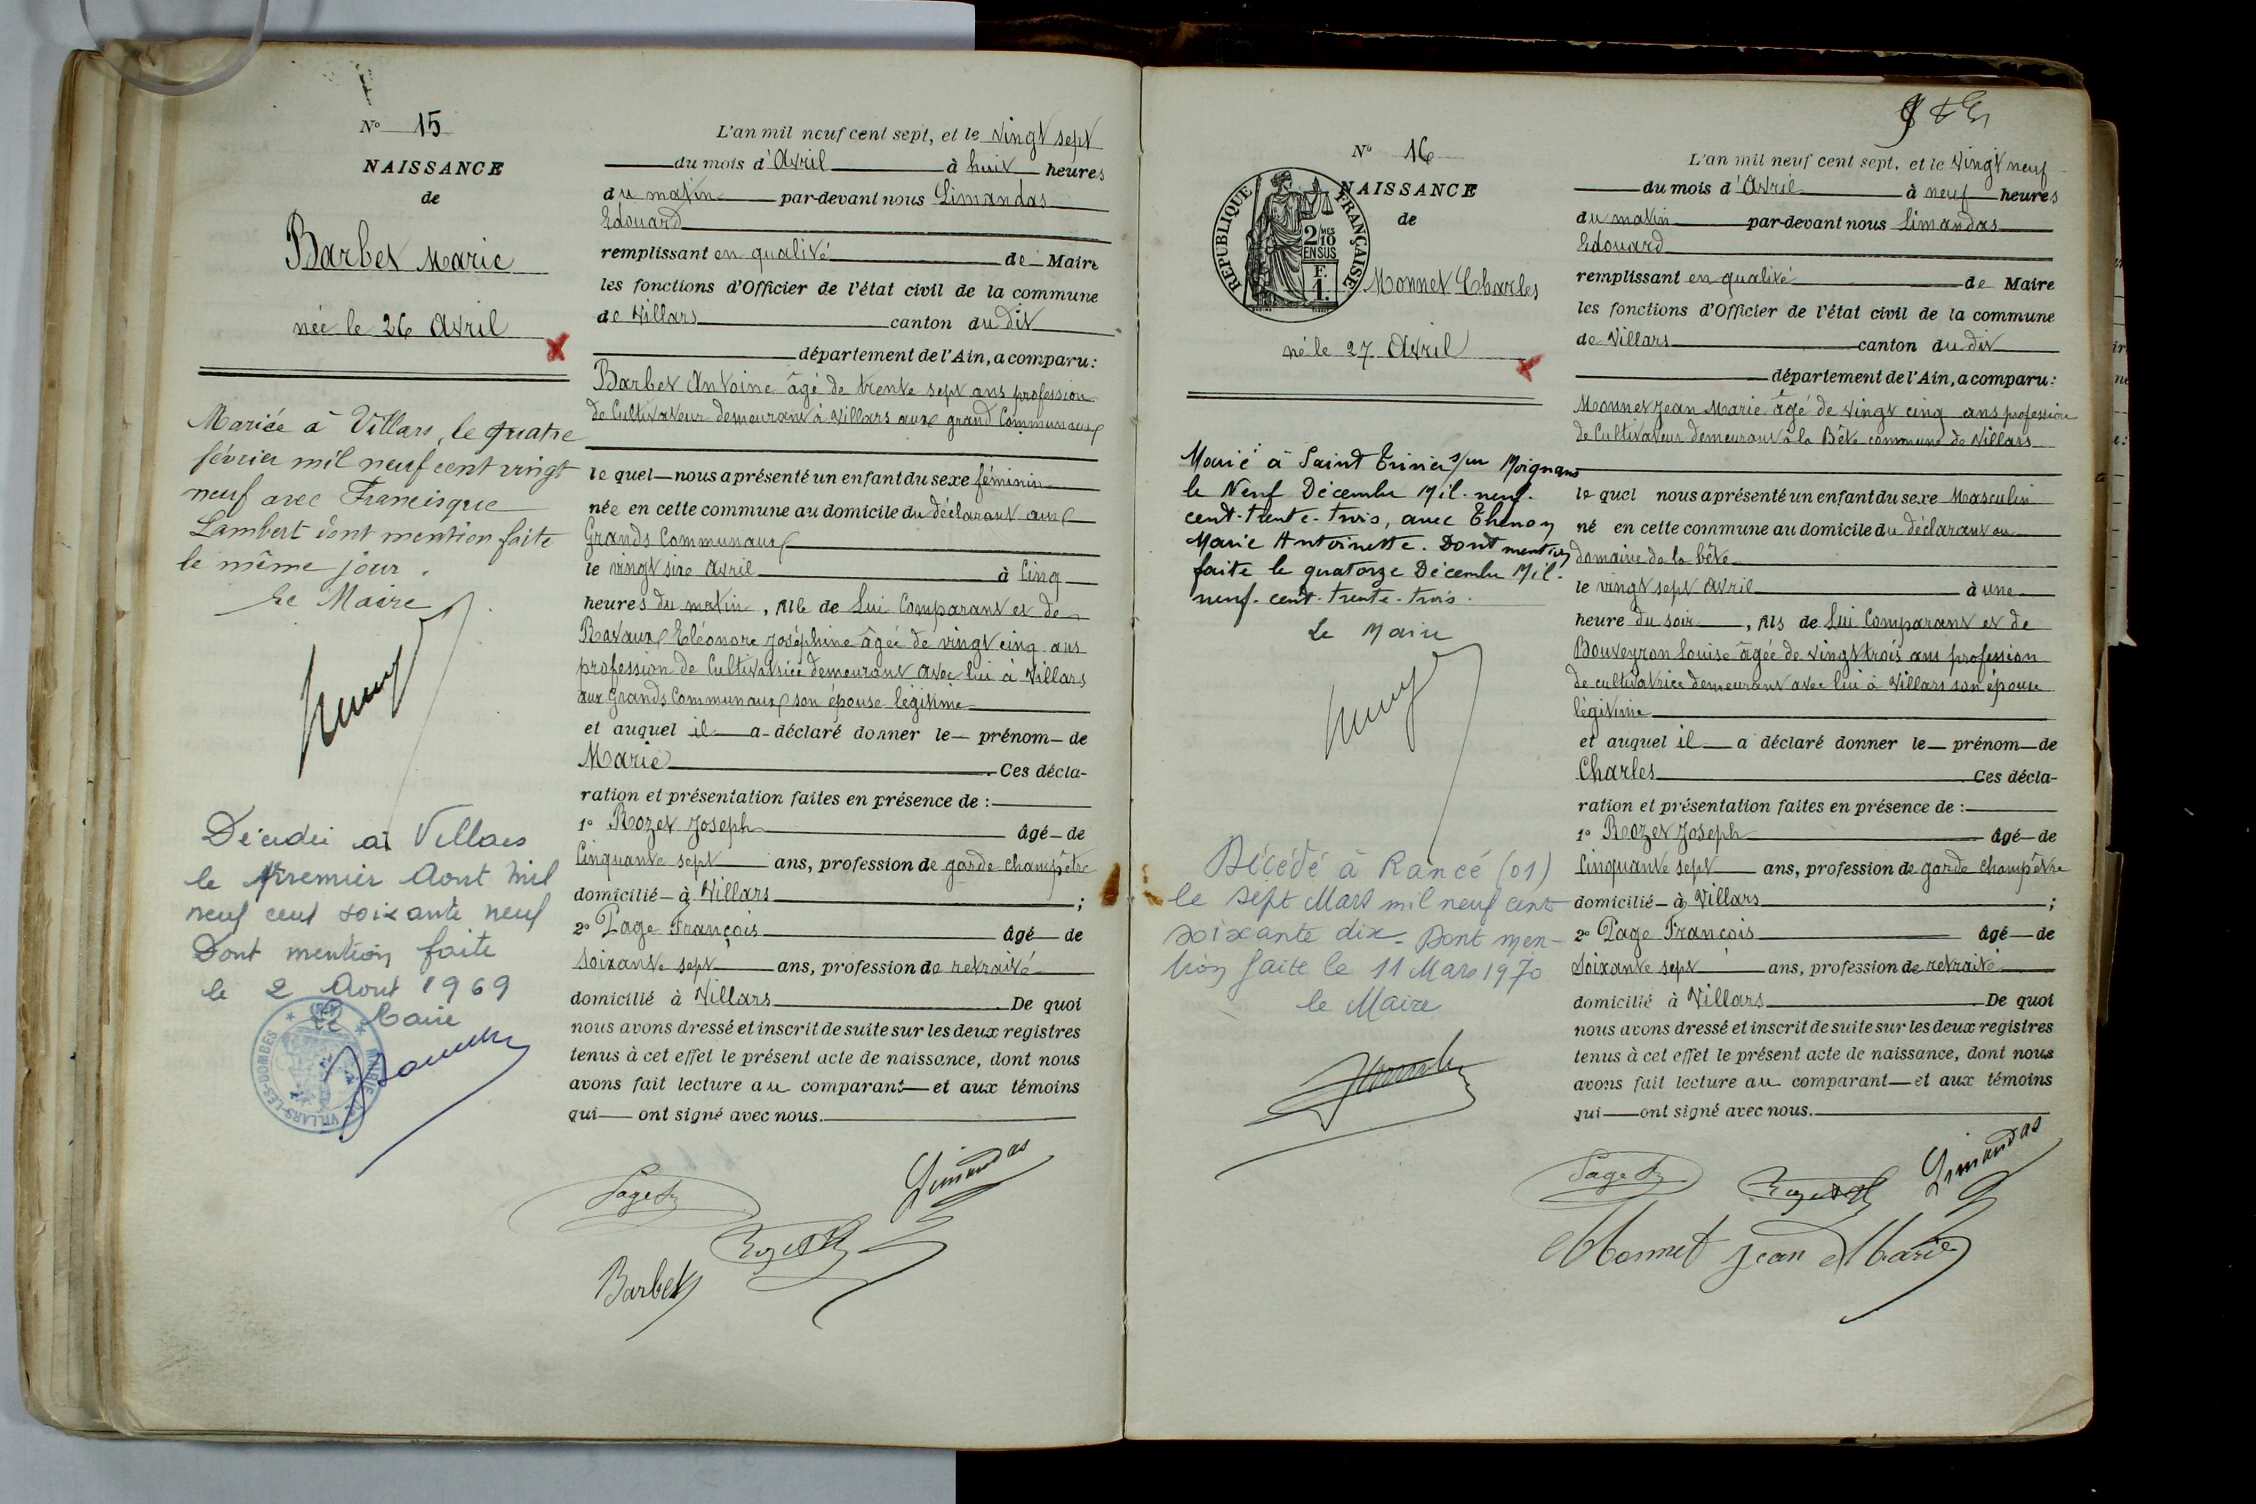 Nº 15
NAISSANCE
de
Barbet Marie
née le 26 Avril
Mariée à Villars, le quatre
février mil neuf cent vingt
neuf avec Francisque
Lambert dont mention faite
le même jour.
Le Maire
Décédée à Villars
le premier Aout mil
neuf cent soixante neuf
Dont mention faite
le 2 Aout 1969
Le Maire
MAIRIE DE VILLARS-LES-DOMBES
L'an mil neuf cent sept, et le vingt sept
du mois d'Avril à huit heures
du matin par-devant nous Limandas
Edouard
remplissant en qualité de Maire
les fonctions d'Officier de l'état civil de la commune
de Villars canton du dit
département de l'Ain, a comparu:
Barbet Antoine âgé de trente sept ans profession
de Cultivateur demeurant à Villars aux grand Communaux
le quel nous a présenté un enfant du sexe féminin
née en cette commune au domicile du déclarant aux
Grands Communaux
le vingt six Avril à Cinq
heures du matin, fille de Lui Comparant et de
Ravaux Eléonore Joséphine âgée de vingt cinq ans
profession de Cultivatrice demeurant avec lui à Villars
aux Grands Communaux son épouse légitime
et auquel il a déclaré donner le prénom de
Marie Ces décla-
ration et présentation faites en présence de :
1º Rozet Joseph âgé de
Cinquante sept ans, profession de garde champêtre
domicilié à Villars ;
2º Page François âgé de
soixante sept ans, profession de retraité
domicilié à Villars De quoi
nous avons dressé et inscrit de suite sur les deux registres
tenus à cet effet le présent acte de naissance, dont nous
avons fait lecture au comparant et aux témoins
qui ont signé avec nous.
Page
Limandas
Rozet
Barbet
Nº 16
NAISSANCE
de
RÉPUBLIQUE FRANÇAISE
2/10 MES
EN SUS
F.
1.
Monnet Charles
né le 27 Avril
Marié à Saint Trivier s/ur Moignans
le Neuf Décembre Mil-neuf-
cent-trente-trois, avec Thenon
Marie Antoinette. Dont mention
faite le quatorze Décembre Mil-
neuf-cent-trente-trois.
Le Maire
Décédé à Rancé (01)
le sept Mars mil neuf cent
soixante dix. Dont men-
tion faite le 11 Mars 1970
le Maire
L'an mil neuf cent sept, et le vingt neuf
du mois d'Avril à neuf heures
du matin par-devant nous Limandas
Edouard
remplissant en qualité de Maire
les fonctions d'Officier de l'état civil de la commune
de Villars canton du dit
département de l'Ain, a comparu:
Monnet Jean Marie âgé de vingt cinq ans profession
de Cultivateur demeurant à la Bête commune de Villars
le quel nous a présenté un enfant du sexe Masculin
né en cette commune au domicile du déclarant au
domaine de la bête
le vingt sept Avril à une
heure du soir, fils de Lui Comparant et de
Bouveyron Louise âgée de vingt trois ans profession
de cultivatrice demeurant avec lui à Villars son épouse
légitime
et auquel il a déclaré donner le prénom de
Charles Ces décla-
ration et présentation faites en présence de :
1º Rozet Joseph âgé de
Cinquante sept ans, profession de garde champêtre
domicilié à Villars ;
2º Page François âgé de
soixante sept ans, profession de retraité
domicilié à Villars De quoi
nous avons dressé et inscrit de suite sur les deux registres
tenus à cet effet le présent acte de naissance, dont nous
avons fait lecture au comparant et aux témoins
qui ont signé avec nous.
Page
Rozet
Limandas
Monnet Jean Marie